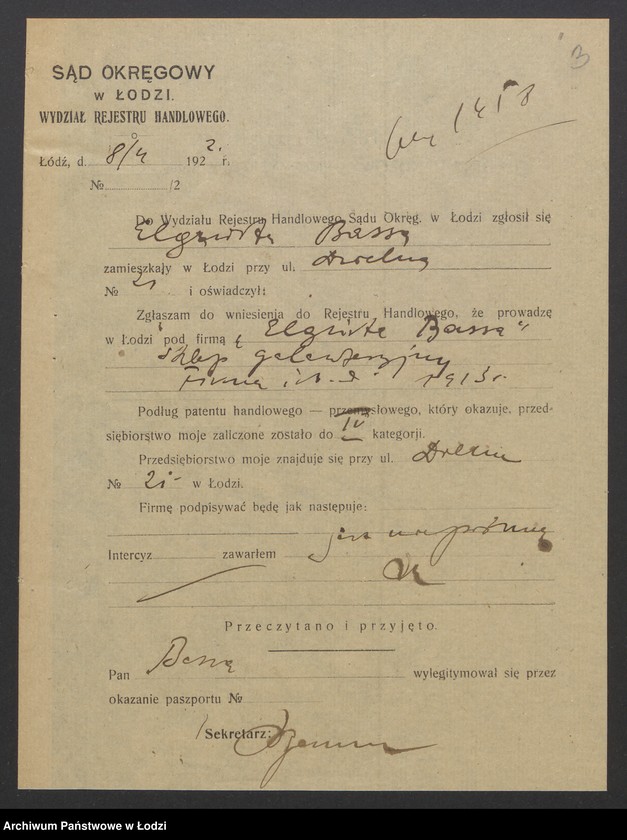 3
SĄD OKRĘGOWY
w ŁODZI.
WYDZIAŁ REJESTRU HANDLOWEGO.
1458
Łódź, d. 8/4 1922. r.
№ /2
Do Wydziału Rejestru Handlowego Sądu Okręg. w Łodzi zgłosił się
Bassa
zamieszkały w Łodzi przy ul.
№ i oświadczył:
Zgłaszam do wniesienia do Rejestru Handlowego, że prowadzę
w Łodzi pod firmą „ Bassa"
Sklep galanteryjny
Firma 1913 r.
Podług patentu handlowego — przemysłowego, który okazuje, przed-
siębiorstwo moje zaliczone zostało do IV kategorji.
Przedsiębiorstwo moje znajduje się przy ul.
№ w Łodzi.
Firmę podpisywać będę jak następuje:
Intercyz zawarłem
Przeczytano i przyjęto.
Pan Bassa wylegitymował się przez
okazanie paszportu №
Sekretarz:
Archiwum Państwowe w Łodzi